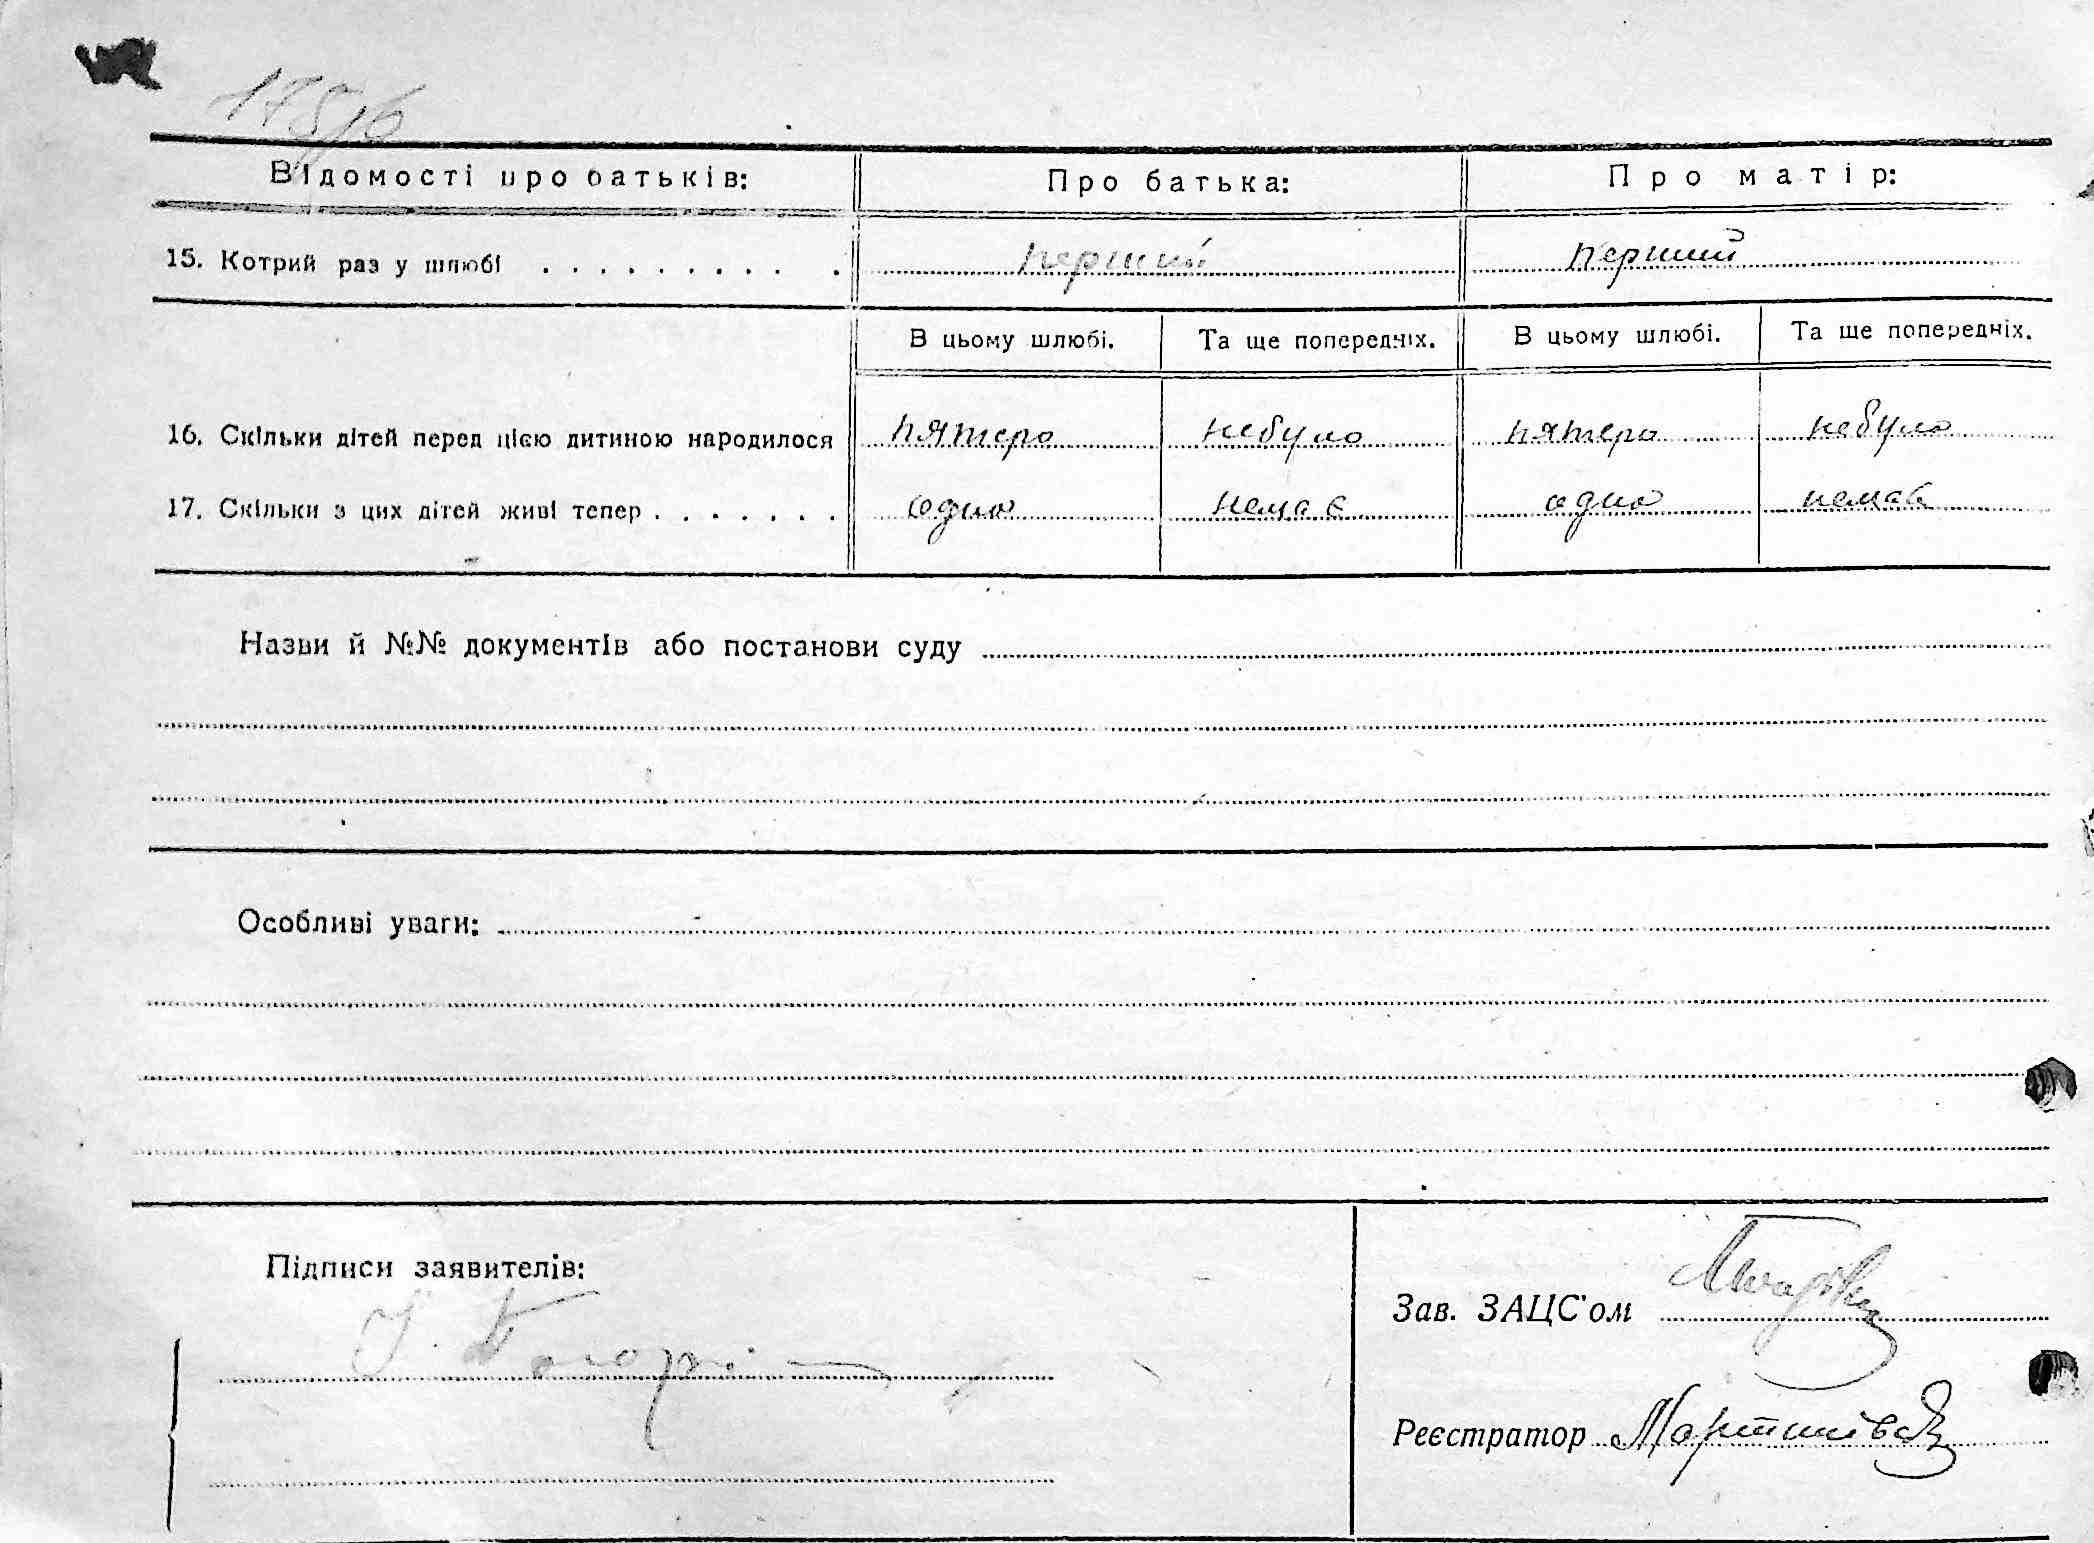 Відомості про батьків: Про батька: Про матір:
15. Котрий раз у шлюбі . . . . . . . . . . перший перший
В цьому шлюбі. Та ще попередніх. В цьому шлюбі. Та ще попередніх.
16. Скільки дітей перед цією дитиною народилося пятеро небуло пятеро небуло
17. Скільки з цих дітей живі тепер . . . . . . . одно немає одно немає
Назви й №№ документів або постанови суду
Особливі уваги:
Підписи заявителів:
Зав. ЗАЦС'ом
Реєстратор